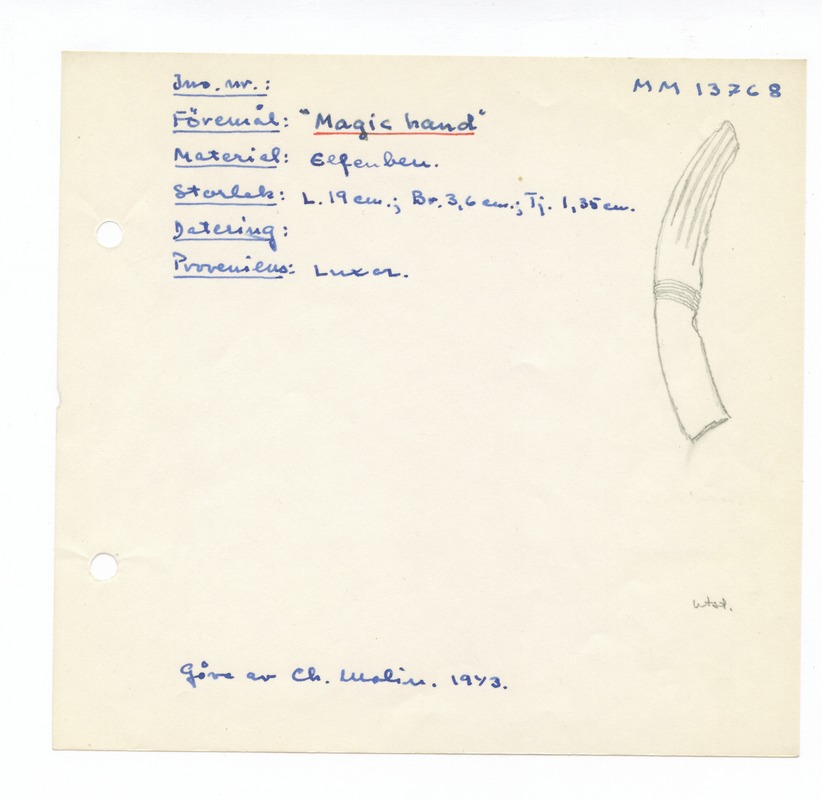 Inv. nr.:
MM 13768
Föremål: "Magic hand"
Material: Elfenben.
Storlek: L. 19 cm.; Br. 3,6 cm.; Tj. 1,35 cm.
Datering:
Proveniens: Luxor.
utst.
Gåva av Ch. Malin. 1943.